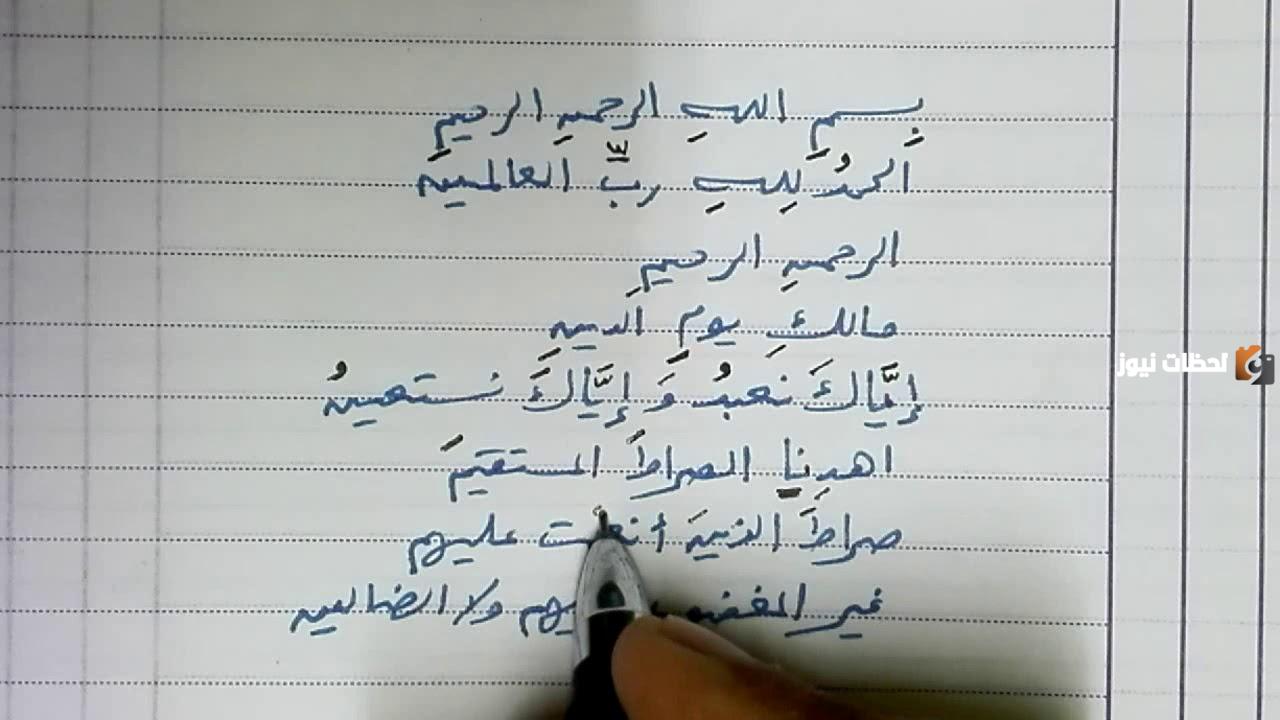 بِسمِ اللهِ الرحمنِ الرحيمِ
الحمدُ لِلهِ ربِّ العالمين
الرحمنِ الرحيمِ
مالكِ يومِ الدين
إيَّاكَ نَعبدُ وَ إيَّاكَ نستعينُ
اهدِنا الصراطَ المستقيمَ
صراطَ الذينَ أنعمت عليهم
غير المغضوب ولا الضالين
لحظات نيوز